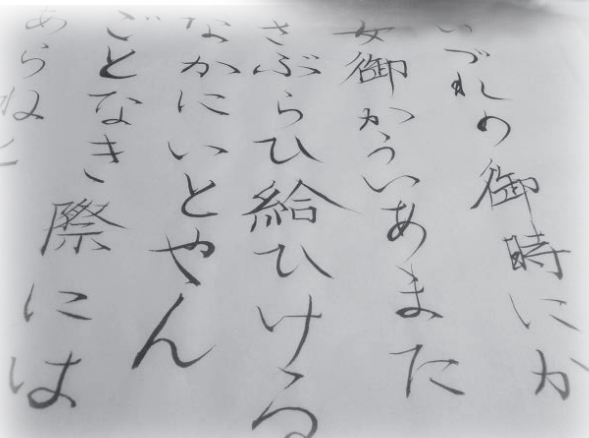 いづれの御時にか
女御かういあまた
さぶらひ給ひける
なかにいとやん
ごとなき際には
あらねと